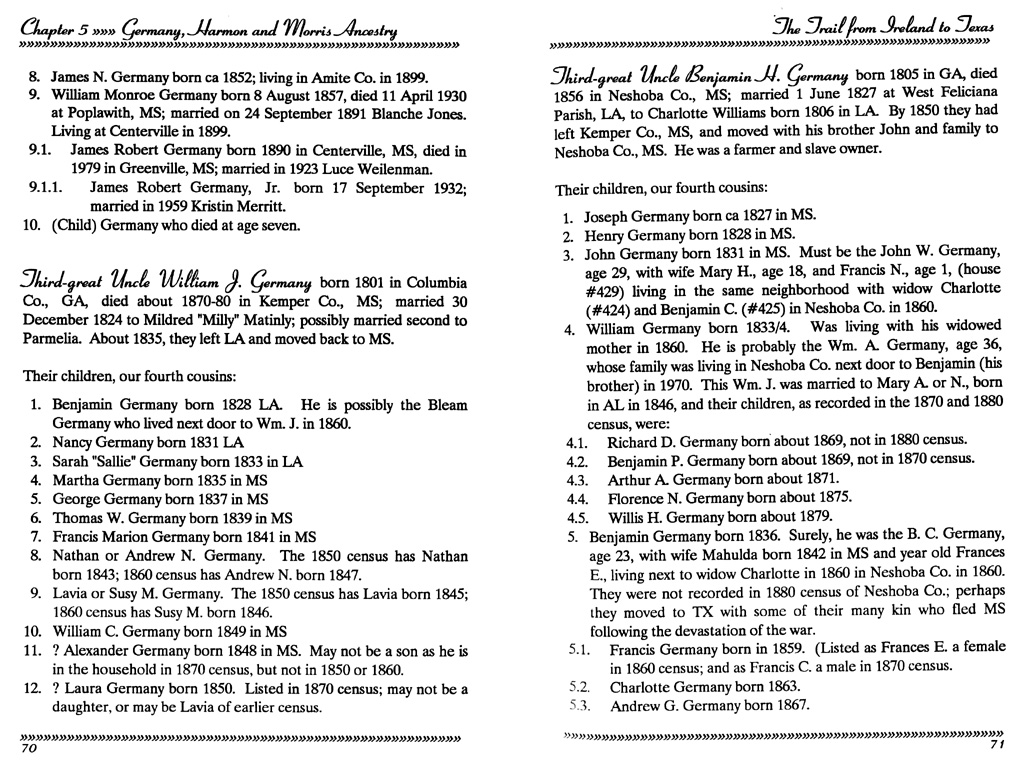 Chapter 5 »»» Germany, Harmon and Morris Ancestry
8. James N. Germany born ca 1852; living in Amite Co. in 1899.
9. William Monroe Germany born 8 August 1857, died 11 April 1930
at Poplawith, MS; married on 24 September 1891 Blanche Jones.
Living at Centerville in 1899.
9.1. James Robert Germany born 1890 in Centerville, MS, died in
1979 in Greenville, MS; married in 1923 Luce Weilenman.
9.1.1. James Robert Germany, Jr. born 17 September 1932;
married in 1959 Kristin Merritt.
10. (Child) Germany who died at age seven.
Third-great Uncle William J. Germany born 1801 in Columbia
Co., GA, died about 1870-80 in Kemper Co., MS; married 30
December 1824 to Mildred "Milly" Matinly; possibly married second to
Parmelia. About 1835, they left LA and moved back to MS.
Their children, our fourth cousins:
1. Benjamin Germany born 1828 LA. He is possibly the Bleam
Germany who lived next door to Wm. J. in 1860.
2. Nancy Germany born 1831 LA
3. Sarah "Sallie" Germany born 1833 in LA
4. Martha Germany born 1835 in MS
5. George Germany born 1837 in MS
6. Thomas W. Germany born 1839 in MS
7. Francis Marion Germany born 1841 in MS
8. Nathan or Andrew N. Germany. The 1850 census has Nathan
born 1843; 1860 census has Andrew N. born 1847.
9. Lavia or Susy M. Germany. The 1850 census has Lavia born 1845;
1860 census has Susy M. born 1846.
10. William C. Germany born 1849 in MS
11. ? Alexander Germany born 1848 in MS. May not be a son as he is
in the household in 1870 census, but not in 1850 or 1860.
12. ? Laura Germany born 1850. Listed in 1870 census; may not be a
daughter, or may be Lavia of earlier census.
70
The Trail from Ireland to Texas
Third-great Uncle Benjamin H. Germany born 1805 in GA, died
1856 in Neshoba Co., MS; married 1 June 1827 at West Feliciana
Parish, LA, to Charlotte Williams born 1806 in LA. By 1850 they had
left Kemper Co., MS, and moved with his brother John and family to
Neshoba Co., MS. He was a farmer and slave owner.
Their children, our fourth cousins:
1. Joseph Germany born ca 1827 in MS.
2. Henry Germany born 1828 in MS.
3. John Germany born 1831 in MS. Must be the John W. Germany,
age 29, with wife Mary H., age 18, and Francis N., age 1, (house
#429) living in the same neighborhood with widow Charlotte
(#424) and Benjamin C. (#425) in Neshoba Co. in 1860.
4. William Germany born 1833/4. Was living with his widowed
mother in 1860. He is probably the Wm. A. Germany, age 36,
whose family was living in Neshoba Co. next door to Benjamin (his
brother) in 1970. This Wm. J. was married to Mary A. or N., born
in AL in 1846, and their children, as recorded in the 1870 and 1880
census, were:
4.1. Richard D. Germany born about 1869, not in 1880 census.
4.2. Benjamin P. Germany born about 1869, not in 1870 census.
4.3. Arthur A. Germany born about 1871.
4.4. Florence N. Germany born about 1875.
4.5. Willis H. Germany born about 1879.
5. Benjamin Germany born 1836. Surely, he was the B. C. Germany,
age 23, with wife Mahulda born 1842 in MS and year old Frances
E., living next to widow Charlotte in 1860 in Neshoba Co. in 1860.
They were not recorded in 1880 census of Neshoba Co.; perhaps
they moved to TX with some of their many kin who fled MS
following the devastation of the war.
5.1. Francis Germany born in 1859. (Listed as Frances E. a female
in 1860 census; and as Francis C. a male in 1870 census.
5.2. Charlotte Germany born 1863.
5.3. Andrew G. Germany born 1867.
71